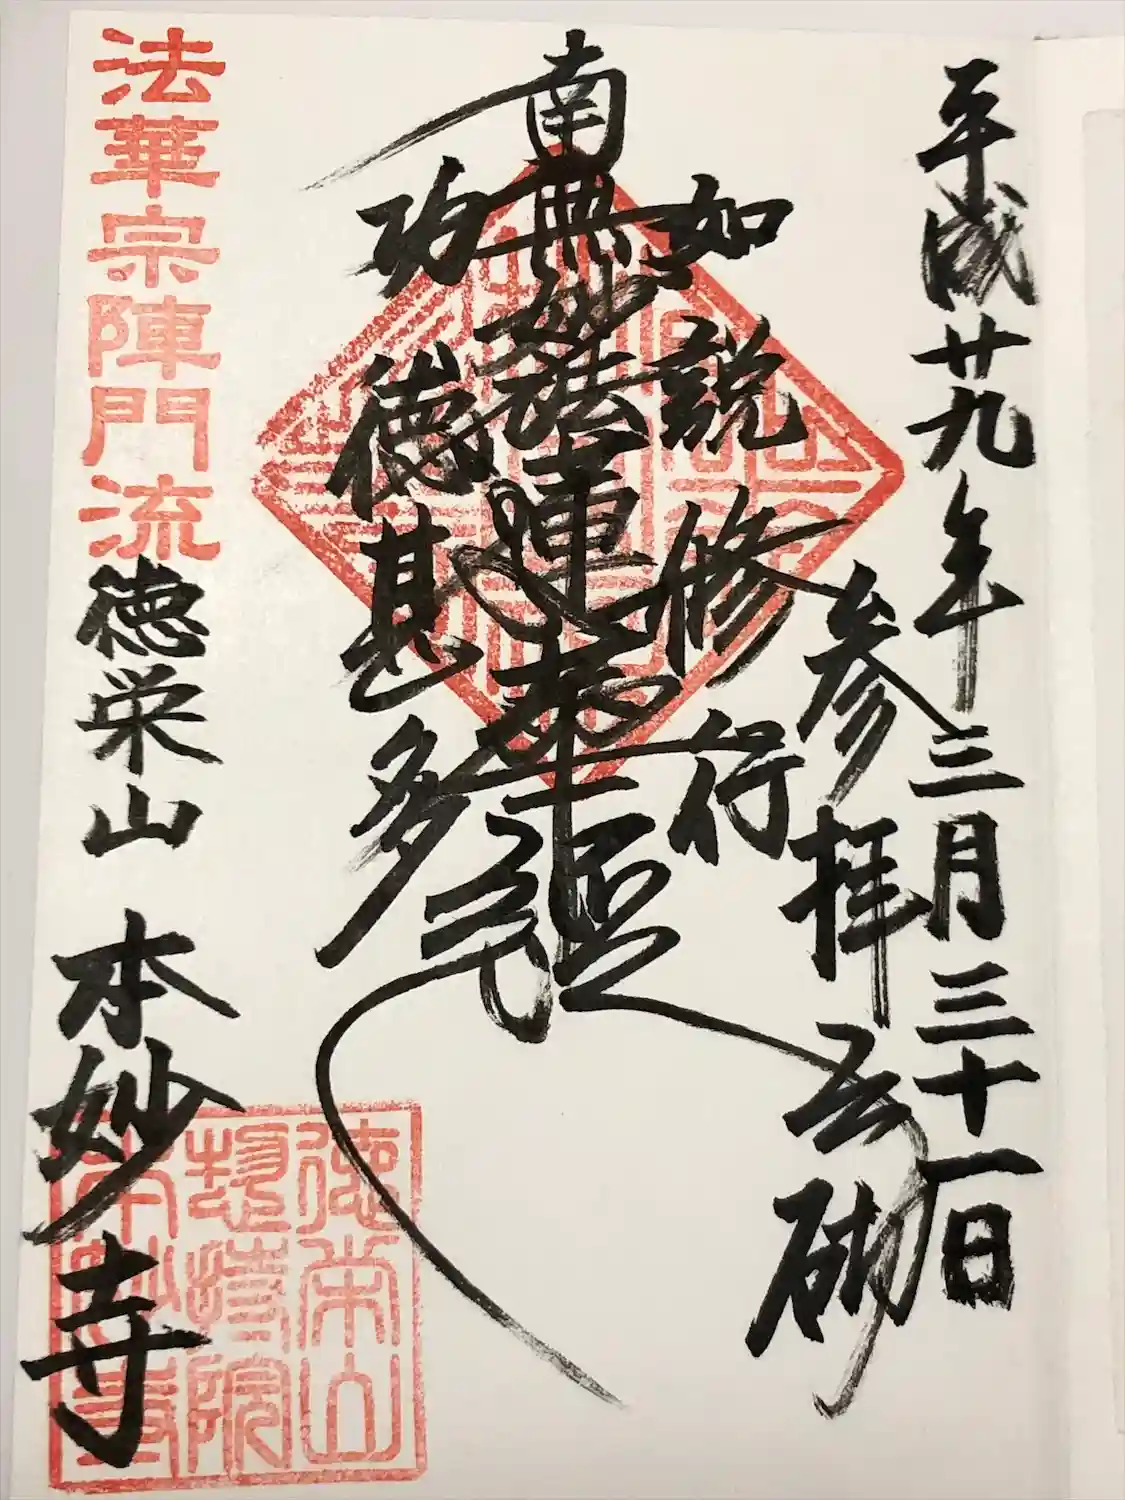 平成廿九年三月三十一日
参拝之砌
如説修行
南無妙法蓮華経
功徳甚多
法華宗陣門流徳栄山 本妙寺
徳栄山
惣持院
本妙寺